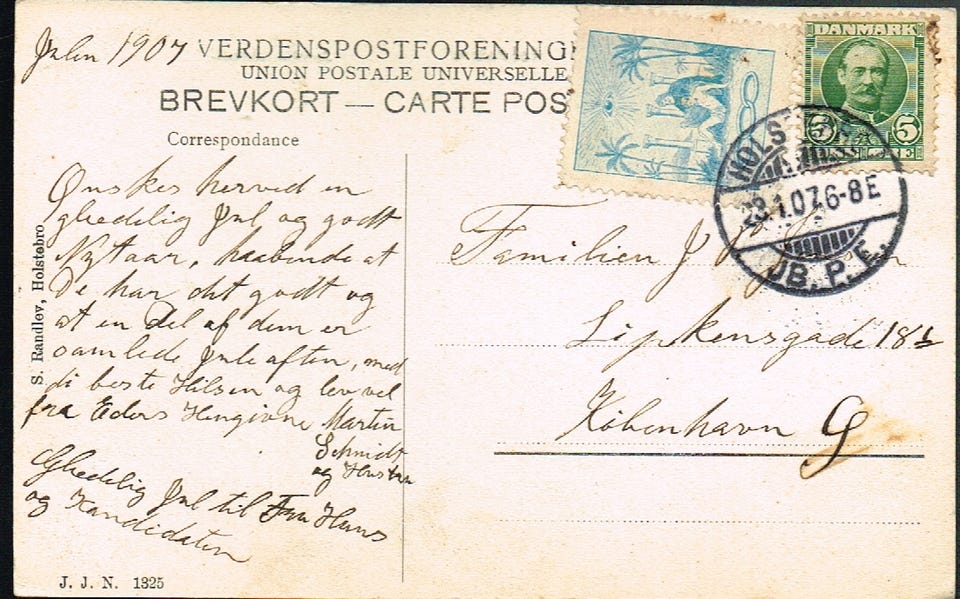 Julen 1907
VERDENSPOSTFORENING
UNION POSTALE UNIVERSELLE
BREVKORT — CARTE POS
Correspondance
Ønskes herved en
glædelig Jul og godt
Nytaar, haabende at
De har det godt og
at en Del af dem er
samlede Juleaften, med
di beste Hilsen og lev vel
fra Eders Hengivne Martin
Schmidt
og Hustru
Glædelig Jul til Fru Hans
og Kandidaten
S. Randlev, Holstebro
J. J. N. 1325
DANMARK
5 5
HOLS
23.1.07.6-8E
JB.P.E.
Familien J
Lipkensgade 18
København Ø